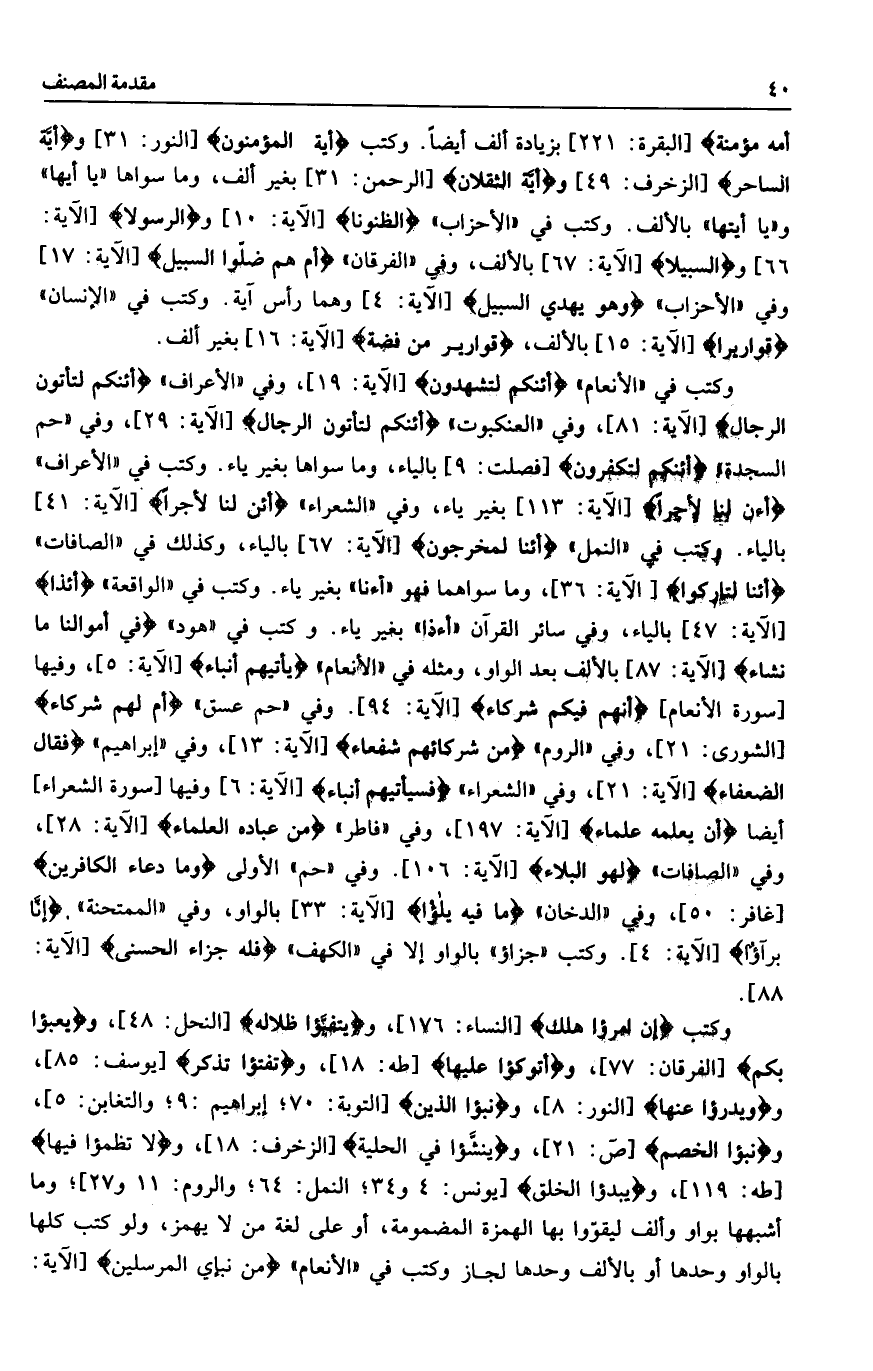 ٤٠ مقدمة المصنف
أمه مؤمنة﴾ [البقرة: ٢٢١] بزيادة ألف أيضاً. وكتب ﴿أية المؤمنون﴾ [النور: ٣١] و﴿أيَّة
الساحر﴾ [الزخرف: ٤٩] و﴿أيَّة الثقلان﴾ [الرحمن: ٣١] بغير ألف، وما سواها «يا أيها»
و«يا أيتها» بالألف. وكتب في «الأحزاب» ﴿الظنونا﴾ [الآية: ١٠] و﴿الرسولا﴾ [الآية:
٦٦] و﴿السبيلا﴾ [الآية: ٦٧] بالألف، وفي «الفرقان» ﴿أم هم ضلّوا السبيل﴾ [الآية: ١٧]
وفي «الأحزاب» ﴿وهو يهدي السبيل﴾ [الآية: ٤] وهما رأس آية. وكتب في «الإنسان»
﴿قواريرا﴾ [الآية: ١٥] بالألف، ﴿قوارير من فضة﴾ [الآية: ١٦] بغير ألف.
وكتب في «الأنعام» ﴿أئنكم لتشهدون﴾ [الآية: ١٩]، وفي «الأعراف» ﴿أئنكم لتأتون
الرجال﴾ [الآية: ٨١]، وفي «العنكبوت» ﴿أئنكم لتأتون الرجال﴾ [الآية: ٢٩]، وفي «حم
السجدة» ﴿أئنكم لتكفرون﴾ [فصلت: ٩] بالياء، وما سواها بغير ياء. وكتب في «الأعراف»
﴿أءن لنا لأجراً﴾ [الآية: ١١٣] بغير ياء، وفي «الشعراء» ﴿أئن لنا لأجراً﴾ [الآية: ٤١]
بالياء. وكتب في «النمل» ﴿أئنا لمخرجون﴾ [الآية: ٦٧] بالياء، وكذلك في «الصافات»
﴿أئنا لتاركوا﴾ [ الآية: ٣٦]، وما سواهما فهو «أءنا» بغير ياء. وكتب في «الواقعة» ﴿أئذا﴾
[الآية: ٤٧] بالياء، وفي سائر القرآن «أءذا» بغير ياء. و كتب في «هود» ﴿في أموالنا ما
نشاء﴾ [الآية: ٨٧] بالألف بعد الواو، ومثله في «الأنعام» ﴿يأتيهم أنباء﴾ [الآية: ٥]، وفيها
[سورة الأنعام] ﴿أنهم فيكم شركاء﴾ [الآية: ٩٤]. وفي «حم عسق» ﴿أم لهم شركاء﴾
[الشورى: ٢١]، وفي «الروم» ﴿من شركائهم شفعاء﴾ [الآية: ١٣]، وفي «إبراهيم» ﴿فقال
الضعفاء﴾ [الآية: ٢١]، وفي «الشعراء» ﴿فسيأتيهم أنباء﴾ [الآية: ٦] وفيها [سورة الشعراء]
أيضا ﴿أن يعلمه علماء﴾ [الآية: ١٩٧]، وفي «فاطر» ﴿من عباده العلماء﴾ [الآية: ٢٨]،
وفي «الصافات» ﴿لهو البلاء﴾ [الآية: ١٠٦]. وفي «حم» الأولى ﴿وما دعاء الكافرين﴾
[غافر: ٥٠]، وفي «الدخان» ﴿ما فيه بلٰؤا﴾ [الآية: ٣٣] بالواو، وفي «الممتحنة» ﴿إنَّا
برآؤا﴾ [الآية: ٤]. وكتب «جزاؤ» بالواو إلا في «الكهف» ﴿فله جزاء الحسنى﴾ [الآية:
٨٨].
وكتب ﴿إن امرؤا هلك﴾ [النساء: ١٧٦]، و﴿يتفيَّؤا ظلاله﴾ [النحل: ٤٨]، و﴿يعبؤا
بكم﴾ [الفرقان: ٧٧]، و﴿أتوكؤا عليها﴾ [طه: ١٨]، و﴿تفتؤا تذكر﴾ [يوسف: ٨٥]،
و﴿ويدرؤا عنها﴾ [النور: ٨]، و﴿نبؤا الذين﴾ [التوبة: ٧٠؛ إبراهيم :٩؛ والتغابن: ٥]،
و﴿نبؤا الخصم﴾ [صَ: ٢١]، و﴿ينشَّؤا في الحلية﴾ [الزخرف: ١٨]، و﴿لا تظمؤا فيها﴾
[طه: ١١٩]، و﴿يبدؤا الخلق﴾ [يونس: ٤ و٣٤؛ النمل: ٦٤؛ والروم: ١١ و٢٧]؛ وما
أشبهها بواو وألف ليقوّوا بها الهمزة المضمومة، أو على لغة من لا يهمز، ولو كتب كلها
بالواو وحدها أو بالألف وحدها لجاز وكتب في «الأنعام» ﴿من نبإي المرسلين﴾ [الآية: